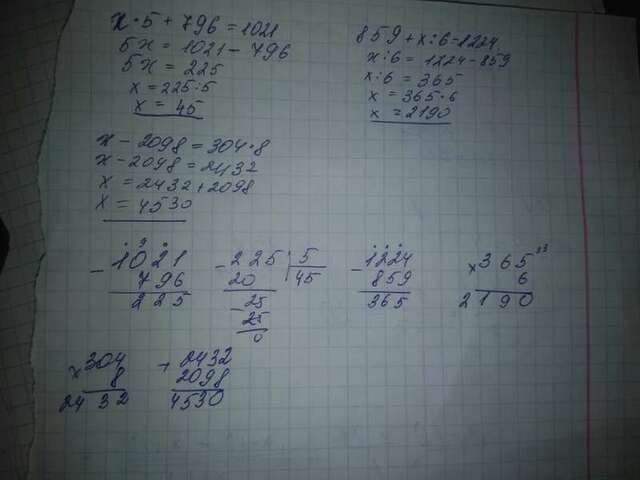 x·5+796=1021
5x=1021-796
5x=225
x=225:5
x=45
859+x:6=1224
x:6=1224-859
x:6=365
x=365·6
x=2190
x-2098=304·8
x-2098=2432
x=2432+2098
x=4530
-1021
796
225
-225|5
20 45
-25
25
0
-1224
859
365
×365
6
2190
×304
8
2432
+2432
2098
4530